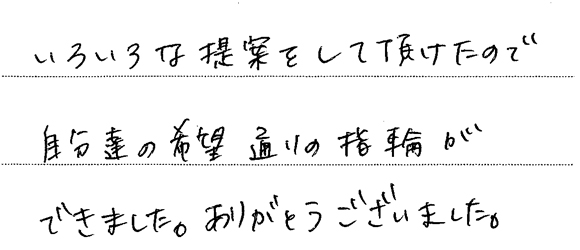 いろいろな提案をして頂けたので
自分達の希望通りの指輪が
できました。ありがとうございました。